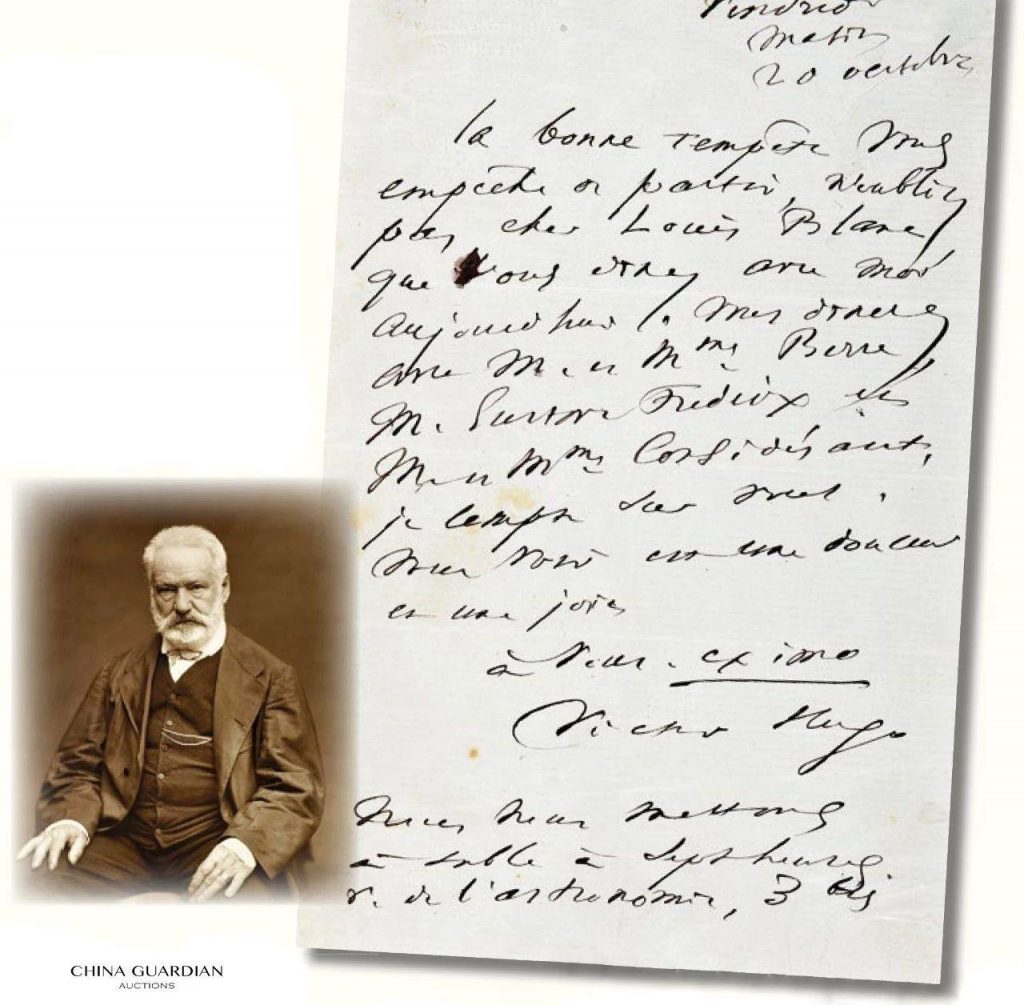 Vendredi
matin
20 octobre
La bonne tempête vous
empêche de partir, n'oubliez
pas, cher Louis Blanc,
que vous dinez avec moi
aujourd'hui. Vous dinerez
avec M. et Mme Berru,
M. Gustave Frédérix et
M. et Mme
je compte sur vous.
Vous voir est une douceur
et une joie
à vous. ex imo
Victor Hugo
Nous nous mettons
à table à sept heures
r. de l'astronomie, 3 bis
CHINA GUARDIAN
AUCTIONS